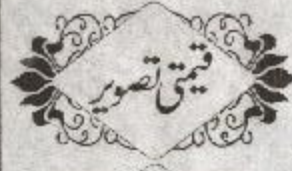 قیمتی تصویر